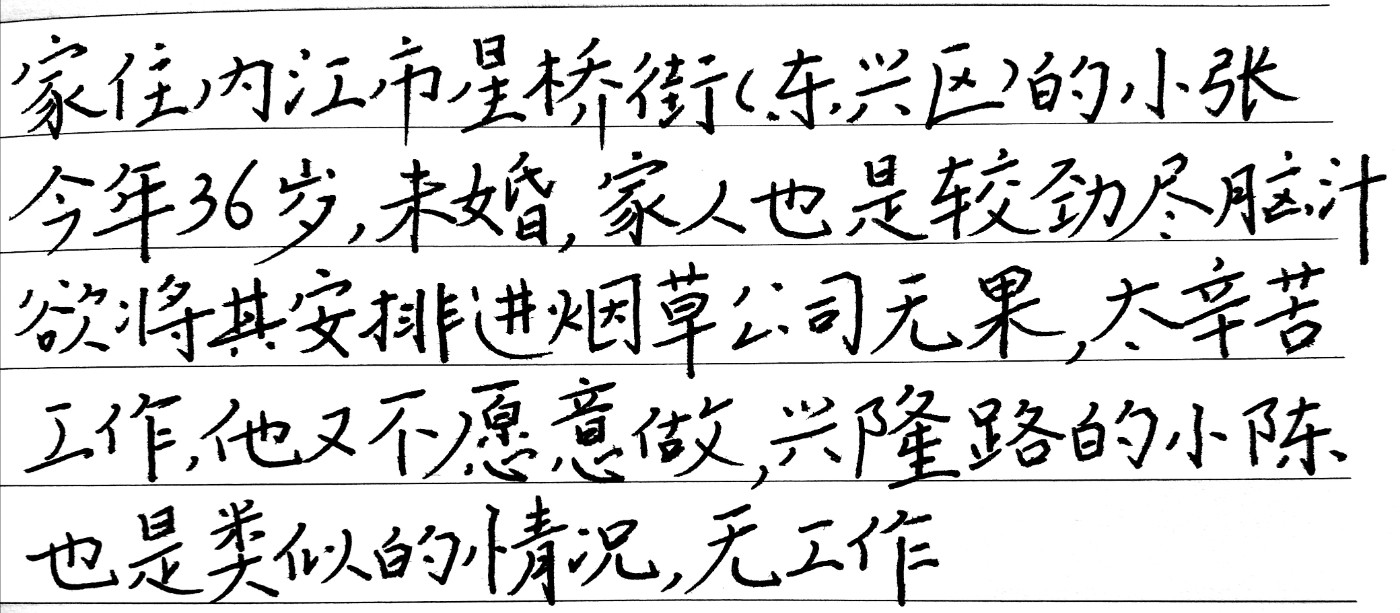 家住内江市星桥街(东兴区)的小张
今年36岁,未婚,家人也是较劲尽脑汁
欲将其安排进烟草公司无果,太辛苦
工作,他又不愿意做,兴隆路的小陈、
也是类似的情况,无工作